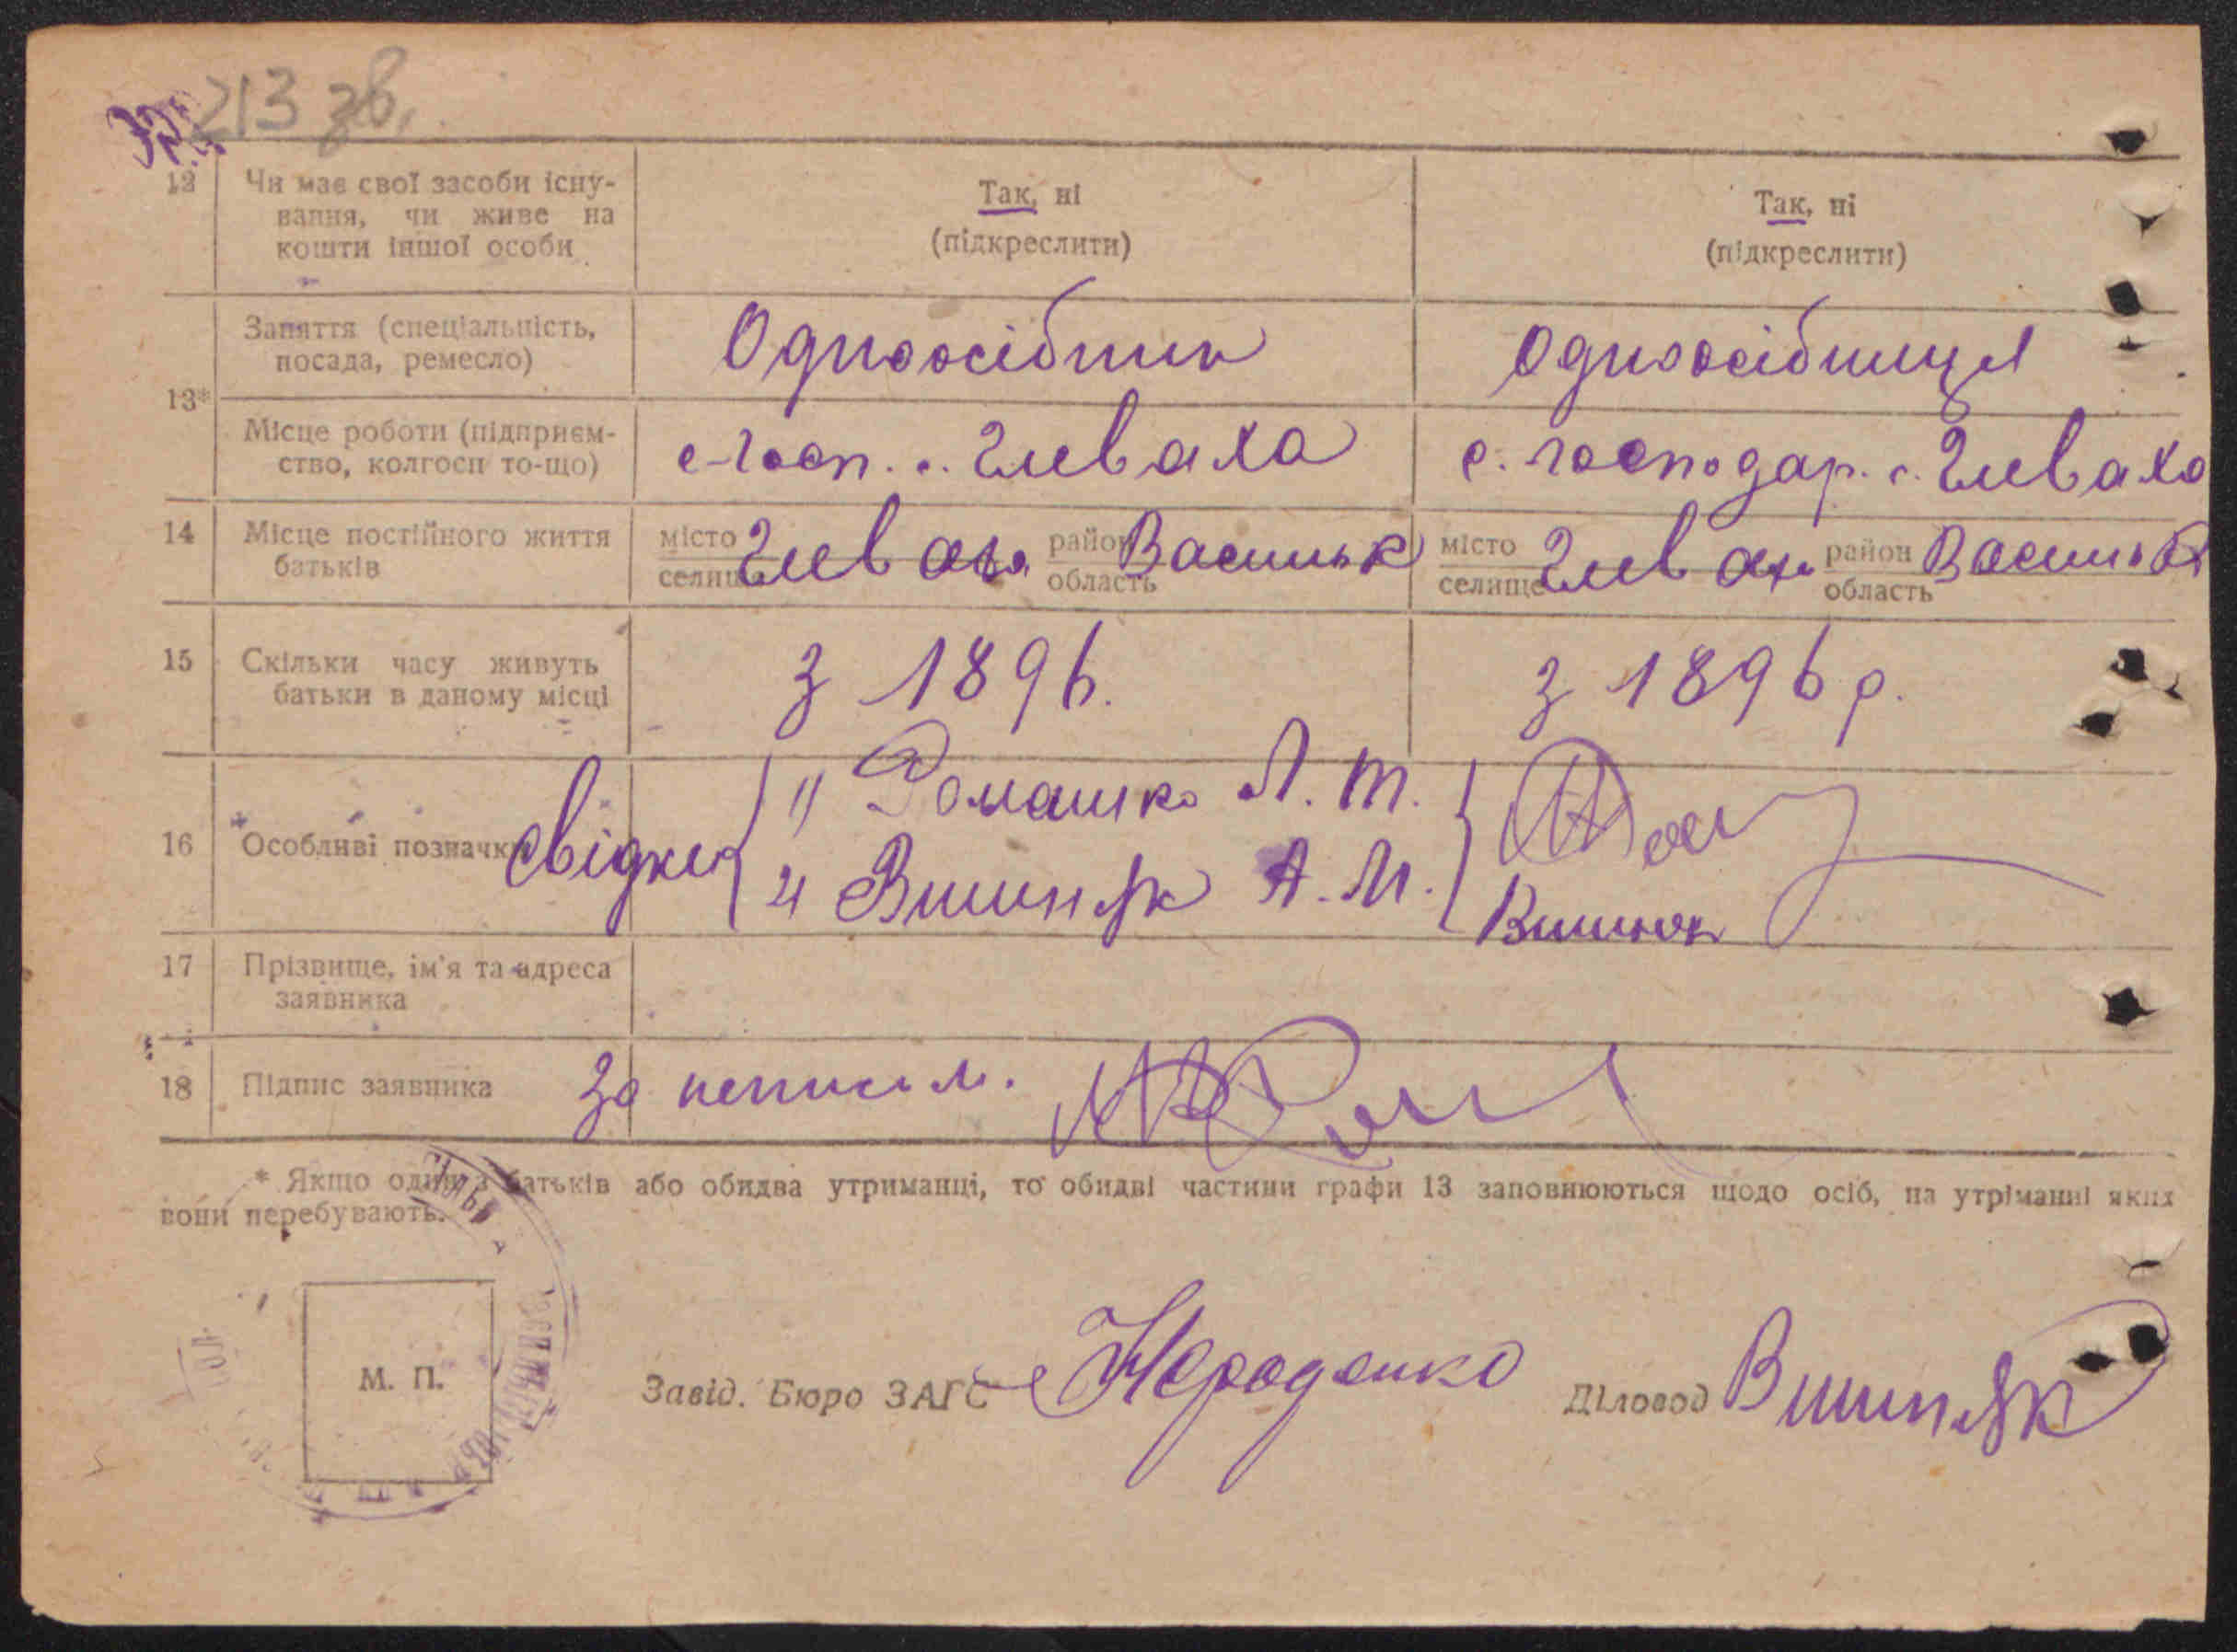 213 зв.
12 Чи має свої засоби існу-
вання, чи живе на
кошти іншої особи
Так, ні
(підкреслити)
Так, ні
(підкреслити)
13*
Заняття (спеціальність,
посада, ремесло)
Одноосібник
Одноосібниця
Місце роботи (підприєм-
ство, колгосп то-що)
с-госп. с. Глеваха
с. господар. с. Глеваха
14 Місце постійного життя
батьків
місто
селище
Глеваха
район
область
Васильк
місто
селище
Глеваха
район
область
Васильк
15 Скільки часу живуть
батьки в даному місці
з 1896.
з 1896 р.
16 Особливі позначки
свідки
1) Ромашко Л. Т.
2) Вишняк А. М.
Вишняк
17 Прізвище, ім'я та адреса
заявника
18 Підпис заявника
За неписьм.
* Якщо один з батьків або обидва утриманці, то обидві частини графи 13 заповнюються щодо осіб, на утріманні яких
вони перебувають.
М. П.
Завід. Бюро ЗАГС
Діловод Вишняк